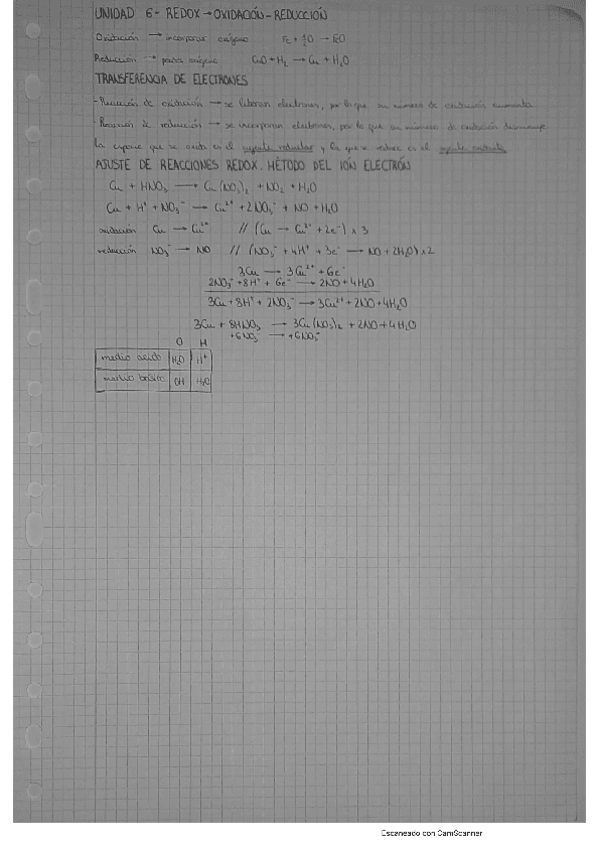 UNIDAD 6- REDOX → OXIDACIÓN-REDUCCIÓN
Oxidación → incorporar oxígeno Fe + ½O → FeO
Reducción → perder oxígeno CuO + H₂ → Cu + H₂O
TRANSFERENCIA DE ELECTRONES
- Reacción de oxidación → se liberan electrones, por lo que su número de oxidación aumenta
- Reacción de reducción → se incorporan electrones, por lo que su número de oxidación disminuye
la especie que se oxida es el agente reductor y la que se reduce es el agente oxidante
AJUSTE DE REACCIONES REDOX. MÉTODO DEL IÓN ELECTRÓN
Cu + HNO₃ → Cu(NO₃)₂ + NO₂ + H₂O
Cu + H⁺ + NO₃⁻ → Cu²⁺ + 2NO₃⁻ + NO + H₂O
oxidación Cu → Cu²⁺ // (Cu → Cu²⁺ + 2e⁻) x 3
reducción NO₃⁻ → NO // (NO₃⁻ + 4H⁺ + 3e⁻ → NO + 2H₂O) x 2
3Cu → 3Cu²⁺ + 6e⁻
2NO₃⁻ + 8H⁺ + 6e⁻ → 2NO + 4H₂O
3Cu + 8H⁺ + 2NO₃⁻ → 3Cu²⁺ + 2NO + 4H₂O
3Cu + 8HNO₃ → 3Cu(NO₃)₂ + 2NO + 4H₂O
+6NO₃⁻ → +6NO₃⁻
O H
medio acido H₂O H⁺
medio básico OH H₂O
Escaneado con CamScanner